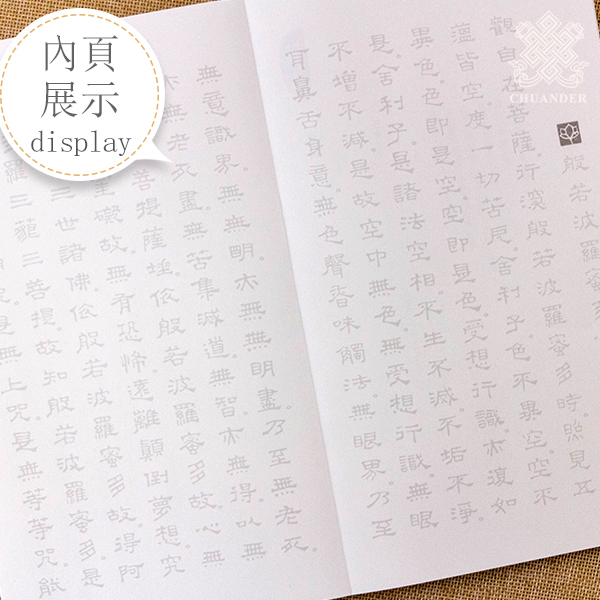 內頁
展示
display
CHUANDER
般若波羅
觀自在菩薩行深般若波羅蜜多時。照見五
蘊皆空度一切苦厄。舍利子色不異空空不
異色。色即是空空即是色。受想行識亦復如
是。舍利子是諸法空相不生不滅。不垢不淨。
不增不減是故空中無色。無受想行識。無眼
耳鼻舌身意。無色聲香味觸法。無眼界乃至
無意識界。無無明。亦無無明盡乃至無老死。
亦無老死盡。無苦集滅道無智亦無得以無
菩提薩埵依般若波羅蜜多故。心無
罣礙故。無有恐怖。遠離顛倒夢想。究
三世諸佛。依般若波羅蜜多。故得阿
羅三藐三菩提。故知般若波羅蜜多。是
無上咒。是無等等咒。能